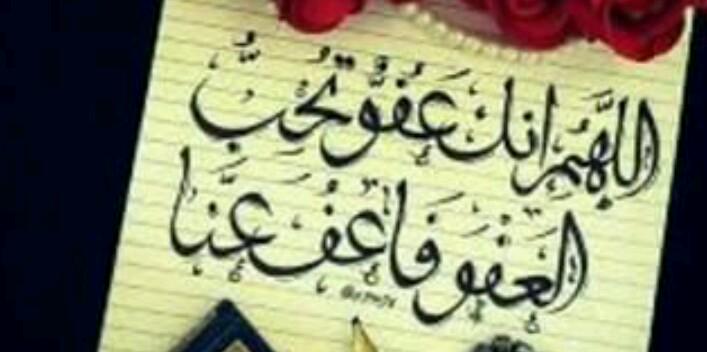 اللَّهُمَّ انك عَفُوٌّ تُحِبُّ
العَفْوَ فَاعْفُ عَنَّا